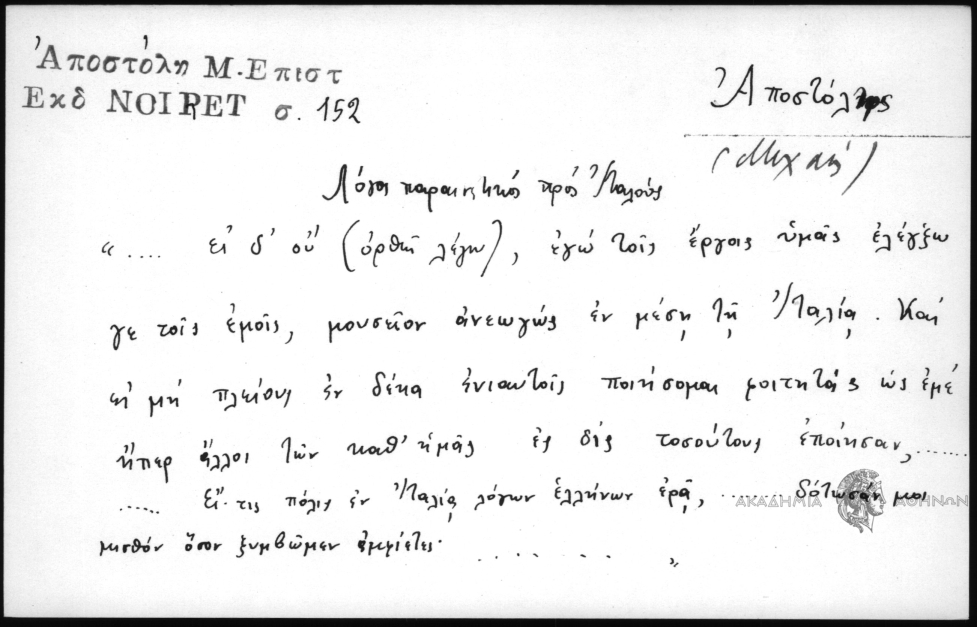 Ἀποστόλη Μ. Επιστ
Εκδ NOIRET σ. 152
Ἀποστόλης
(Μιχαήλ)
Λόγος παραινετικός πρός Ἰταλούς
“ .... εἰ δ' οὔ (ὀρθῆ λέγω), ἐγώ τοῖς ἔργοις ὑμᾶς ἐλέγξω
γε τοῖς ἐμοῖς, μουσεῖον ἀνεῳγώς ἐν μέσῃ τῇ Ἰταλίᾳ. Καί
εἰ μή πλείους ἐν δέκα ἐνιαυτοῖς ποιήσομαι φοιτητάς ὡς ἐμέ
ἤπερ ἄλλοι τῶν καθ' ἡμᾶς ἐς δίς τοσούτους ἐποίησαν, ......
..... Εἴ τις πόλις ἐν Ἰταλίᾳ λόγων ἑλλήνων ἐρᾷ, ....... δότωσάν μοι
μισθόν ὅσον ξυμβῶμεν ἀμφίετες. . . . . . . „
ΑΚΑΔΗΜΙΑ ΑΘΗΝΩΝ